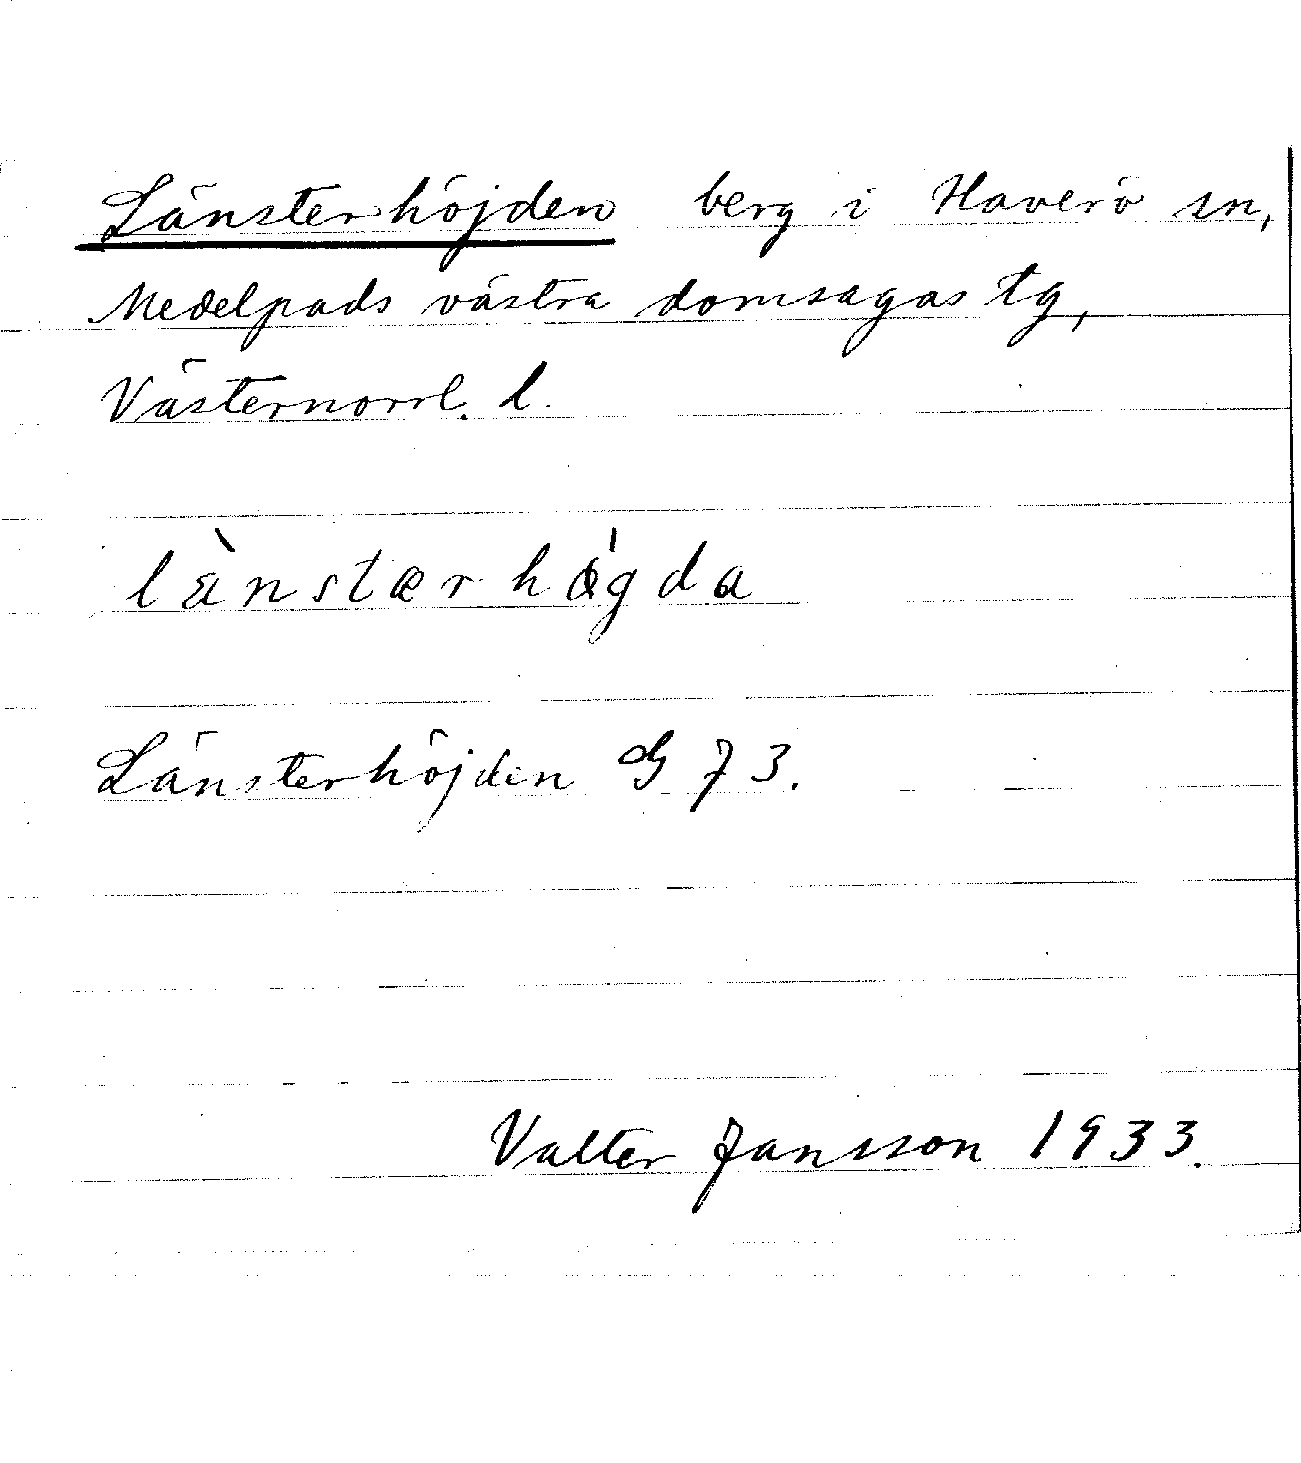 Länsterhöjden berg i Haverö sn,
Medelpads västra domsagas tg,
Västernorrl. l.
lànstærhǿgda
Länsterhöjden G 73.
Valter Jansson 1933.